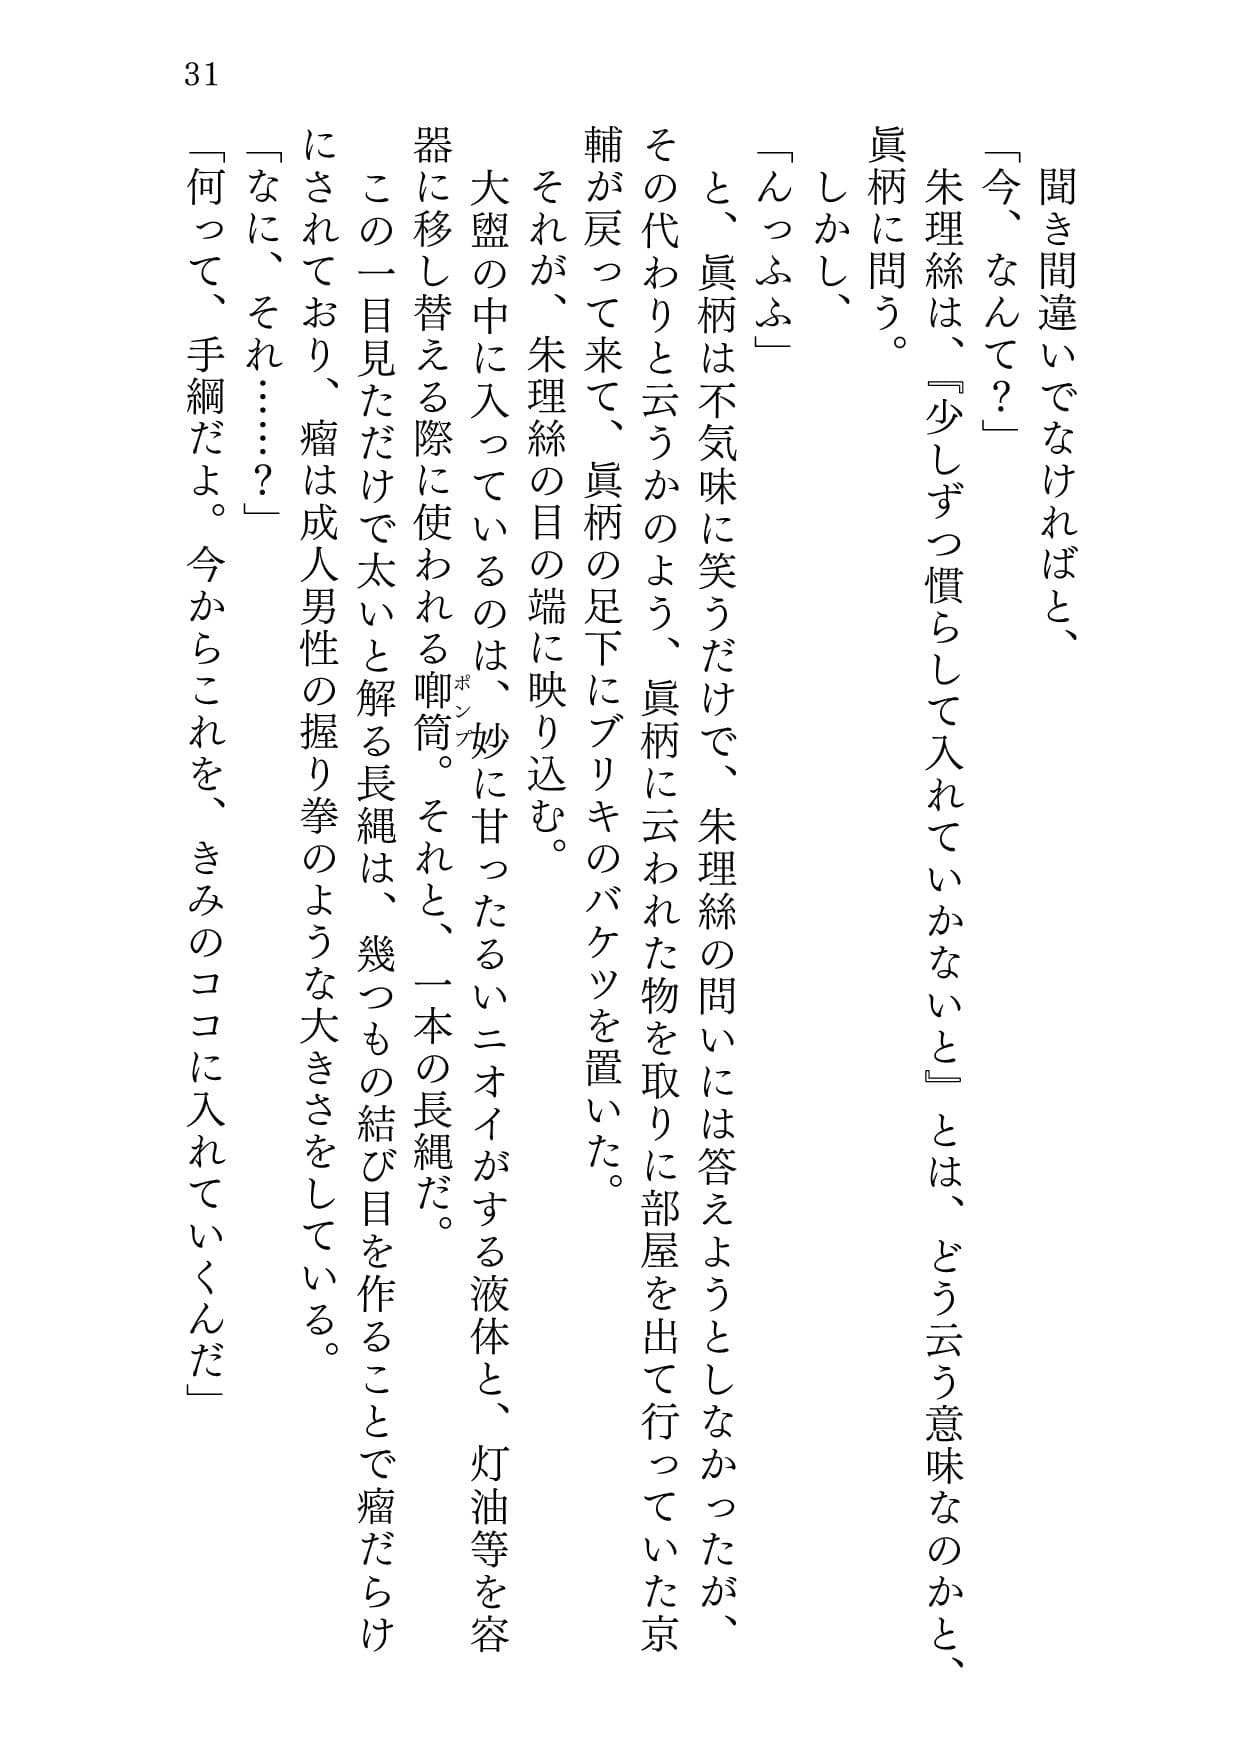 31
聞き間違いでなければと、
「今、なんて？」
朱理絲は、『少しずつ慣らして入れていかないと』とは、どう云う意味なのかと、
眞柄に問う。
しかし、
「んっふふ」
と、眞柄は不気味に笑うだけで、朱理絲の問いには答えようとしなかったが、
その代わりと云うかのよう、眞柄に云われた物を取りに部屋を出て行っていた京
輔が戻って来て、眞柄の足下にブリキのバケツを置いた。
それが、朱理絲の目の端に映り込む。
大盥の中に入っているのは、妙に甘ったるいニオイがする液体と、灯油等を容
器に移し替える際に使われる喞筒。それと、一本の長縄だ。
ポンプ
この一目見ただけで太いと解る長縄は、幾つもの結び目を作ることで瘤だらけ
にされており、瘤は成人男性の握り拳のような大きさをしている。
「なに、それ……？」
「何って、手綱だよ。今からこれを、きみのココに入れていくんだ」